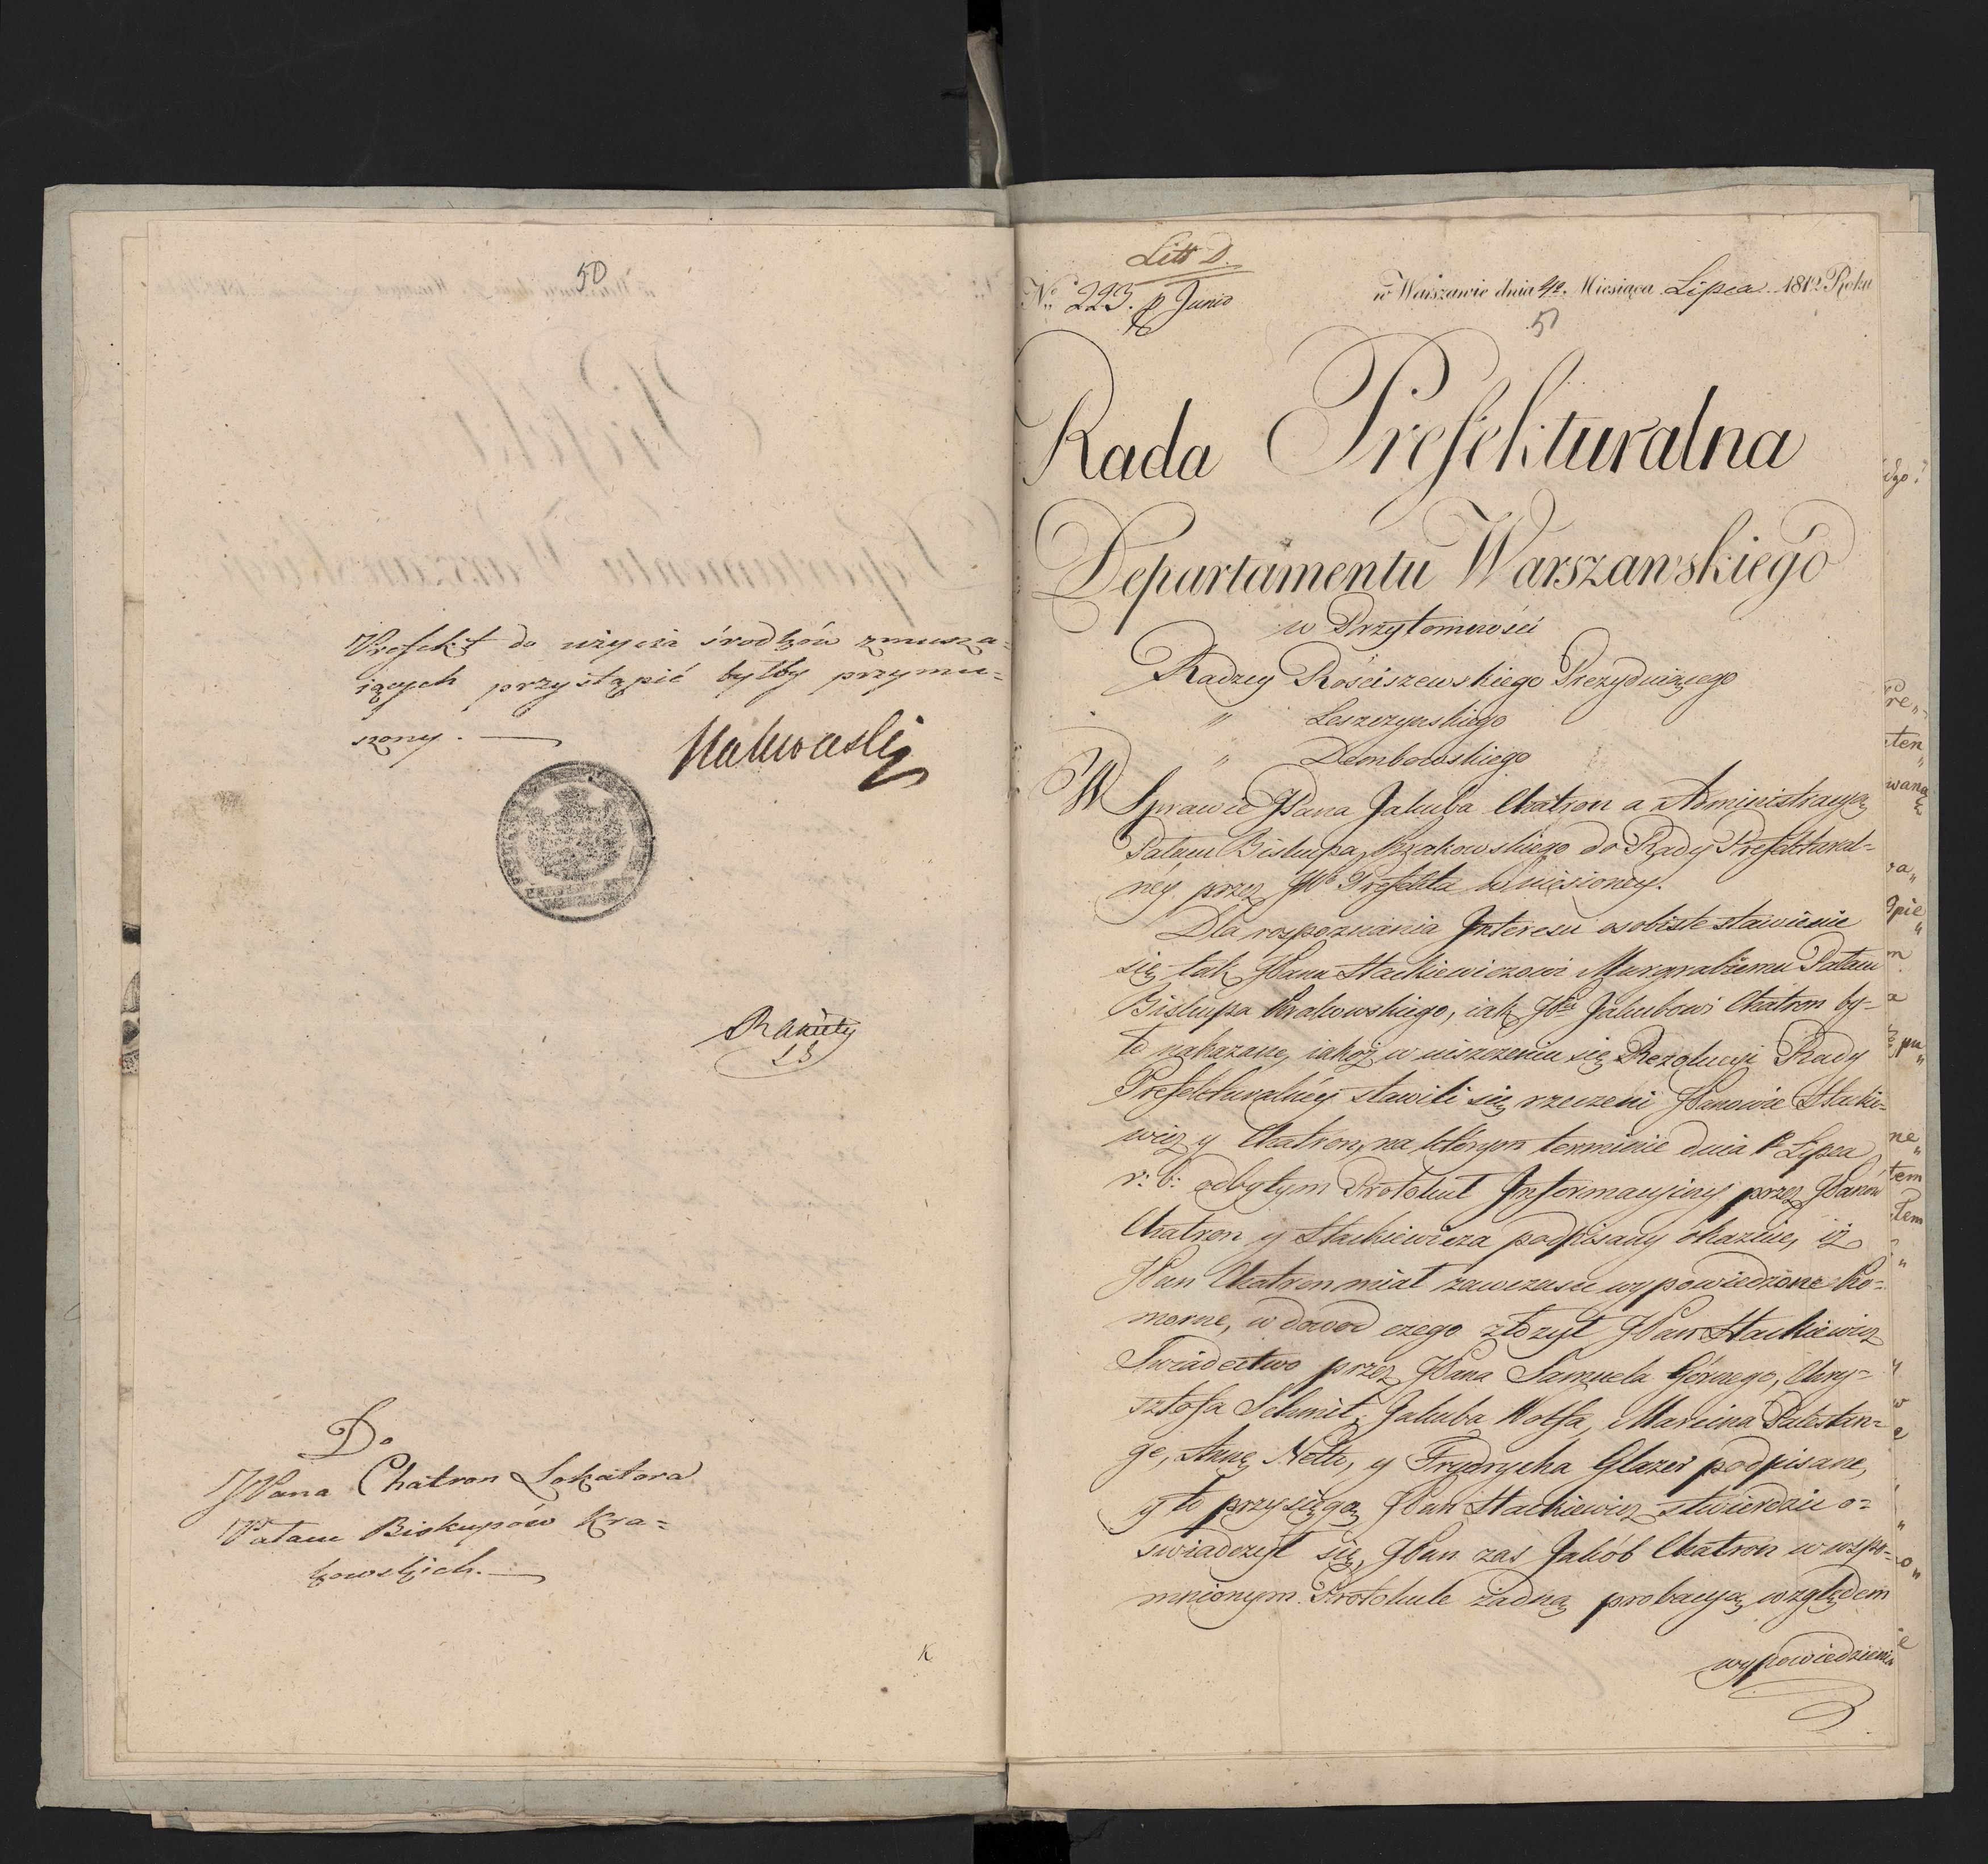 50
Prefekt do użycia środków zmusza-
iących przystąpić byłby przymu-
szony.
Nakwaski
Rakiety
Do
JPana Chatron Lokatora
Pałacu Biskupów Kra-
kowskich.
K
Litt D.
No 223. p Junio
w Warszawie dnia Miesiąca Lipca 1812 Roku
51
Rada Prefekturalna
Departamentu Warszawskiego
w Przytomności
Radzcy Rościszewskiego Prezyduiącego
" Leszczyńskiego
" Dembowskiego
W Sprawie JPana Jakuba Chatron a Administracyą
Pałacu Biskupa Krakowskiego do Rady Prefektural-
ney przez JWo Prefekta wniesioney.
Dla rospoznania Interesu osobiste stawienie
się tak JPanu Stackiewiczowi Murgrabiemu Pałacu
Biskupa Krakowskiego, iak JPu Jakubowi Chatron by-
ło nakazane, iakoż w uiszczeniu się Rezolucyi Rady
Prefekturalnéy stawili się rzeczeni JPanowie Stackie-
wicz y Chatron, na którym terminie dnia Lipca
r: b: odbytym Protokuł Informacyiny przez JPanów
Chatron y Stackiewicza podpisany okazuie, iż
JPan Chatron miał zawczasu wypowiedzone Ko-
morne, w dowod czego złożył JPan Stackiewicz
Swiadectwo przez JPana Samuela Górnego, Chry-
sztofa Schmit, Jakuba Wolfa, Marcina Palestan-
ge, Annę Nette, y Frydrycha Glazer podpisane,
y to przysięgą JPan Stackiewicz stwierdzić o-
swiadczył się, JPan zas Jakób Chatron w wspo-
mnionym Protokule żadną probacyą względem
wypowiedzenia